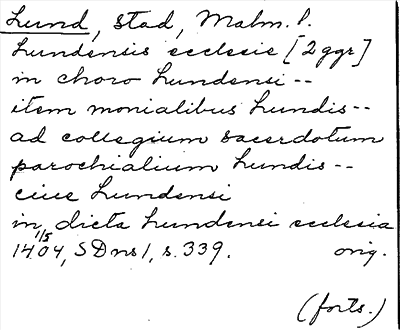 Lund, stad, Malm. l.
Lundensis ecclesie [2 ggr]
in choro Lundensi --
item monialibus Lundis --
ad collegium sacerdotum
parochialium Lundis --
ciue Lundensi
in dicta Lundensi ecclesia
1404 1/5, SDns 1, s. 339. orig.
(forts.)